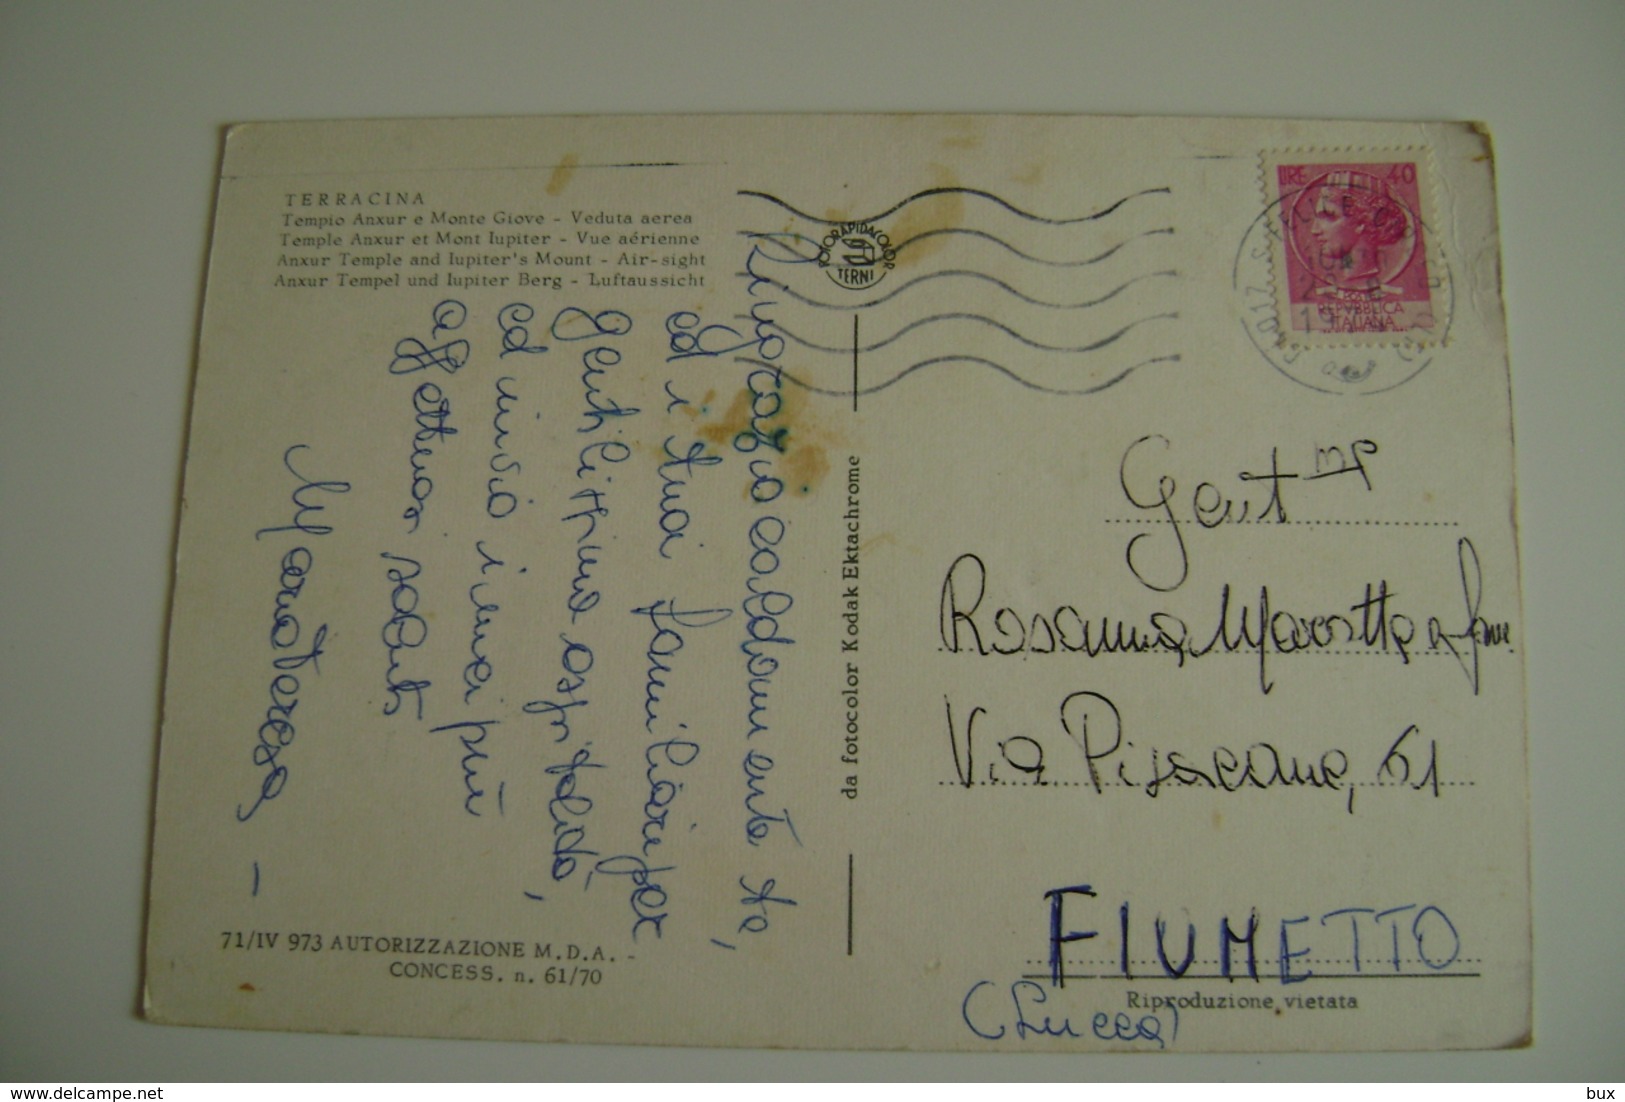 TERRACINA
Tempio Anxur e Monte Giove - Veduta aerea
Temple Anxur et Mont Iupiter - Vue aérienne
Anxur Temple and Iupiter's Mount - Air-sight
Anxur Tempel und Iupiter Berg - Luftaussicht
Ringrazio caldamente te,
ed i tuoi familiari per
gentilissima ospitalità,
ed invio i miei più
affettuosi saluti
Mariateresa -
71/IV 973 AUTORIZZAZIONE M.D.A. -
CONCESS. n. 61/70
FOTORAPIDACOLOR
TERNI
da fotocolor Kodak Ektachrome
LIRE 40
REPVBBLICA
ITALIANA
S. FELICE
Gent
Rosanna Marotta e fam
Via Pisacane, 61
FIUMETTO
(Lucca)
Riproduzione vietata
bux